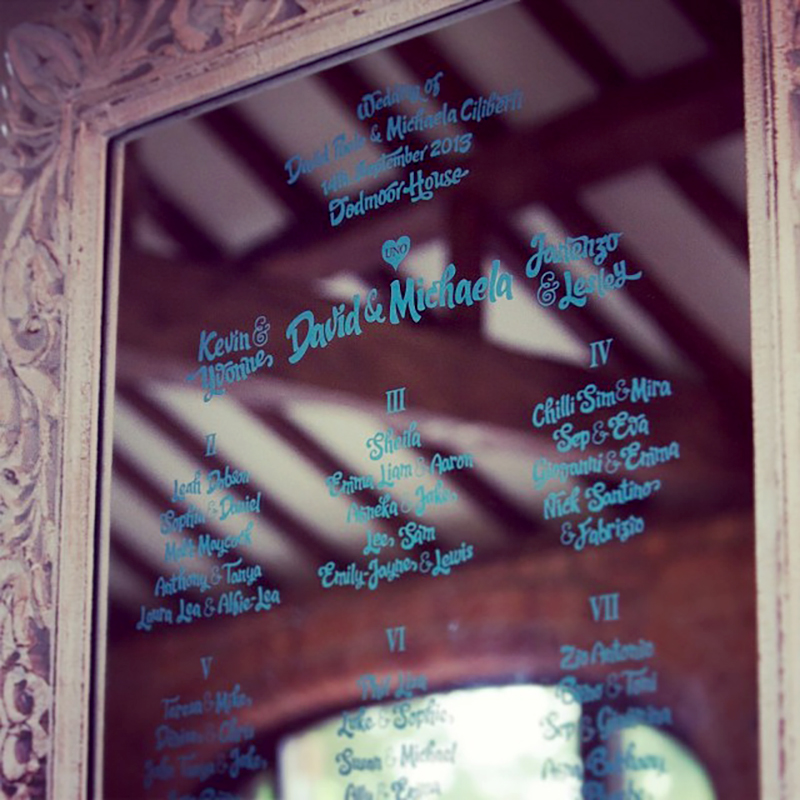 Wedding of
David & Michaela Ciliberti
14th September 2013
Dodmoor House
UNO
Kevin &
Yvonne
David & Michaela
& Lesley
II
Leah Dobson
Sophia & Daniel
Matt Maycock
Anthony & Tanya
Laura Lea & Alfie-Lea
III
Sheila
Emma, Liam & Aaron
Anneka & Jake,
Lee, Sam
Emily-Jayne, & Lewis
IV
Chilli Sim & Mira
Sep & Eva
Giovanni & Emma
Nick Santino,
& Fabrizio
V
Teresa & Mike,
& Chris
Tanya & Jake,
VI
Phil
Luke & Sophie,
Susan & Michael
& Emma
VII
Zio Antonio
& Toni
Sep & Giuseppina
Anthony